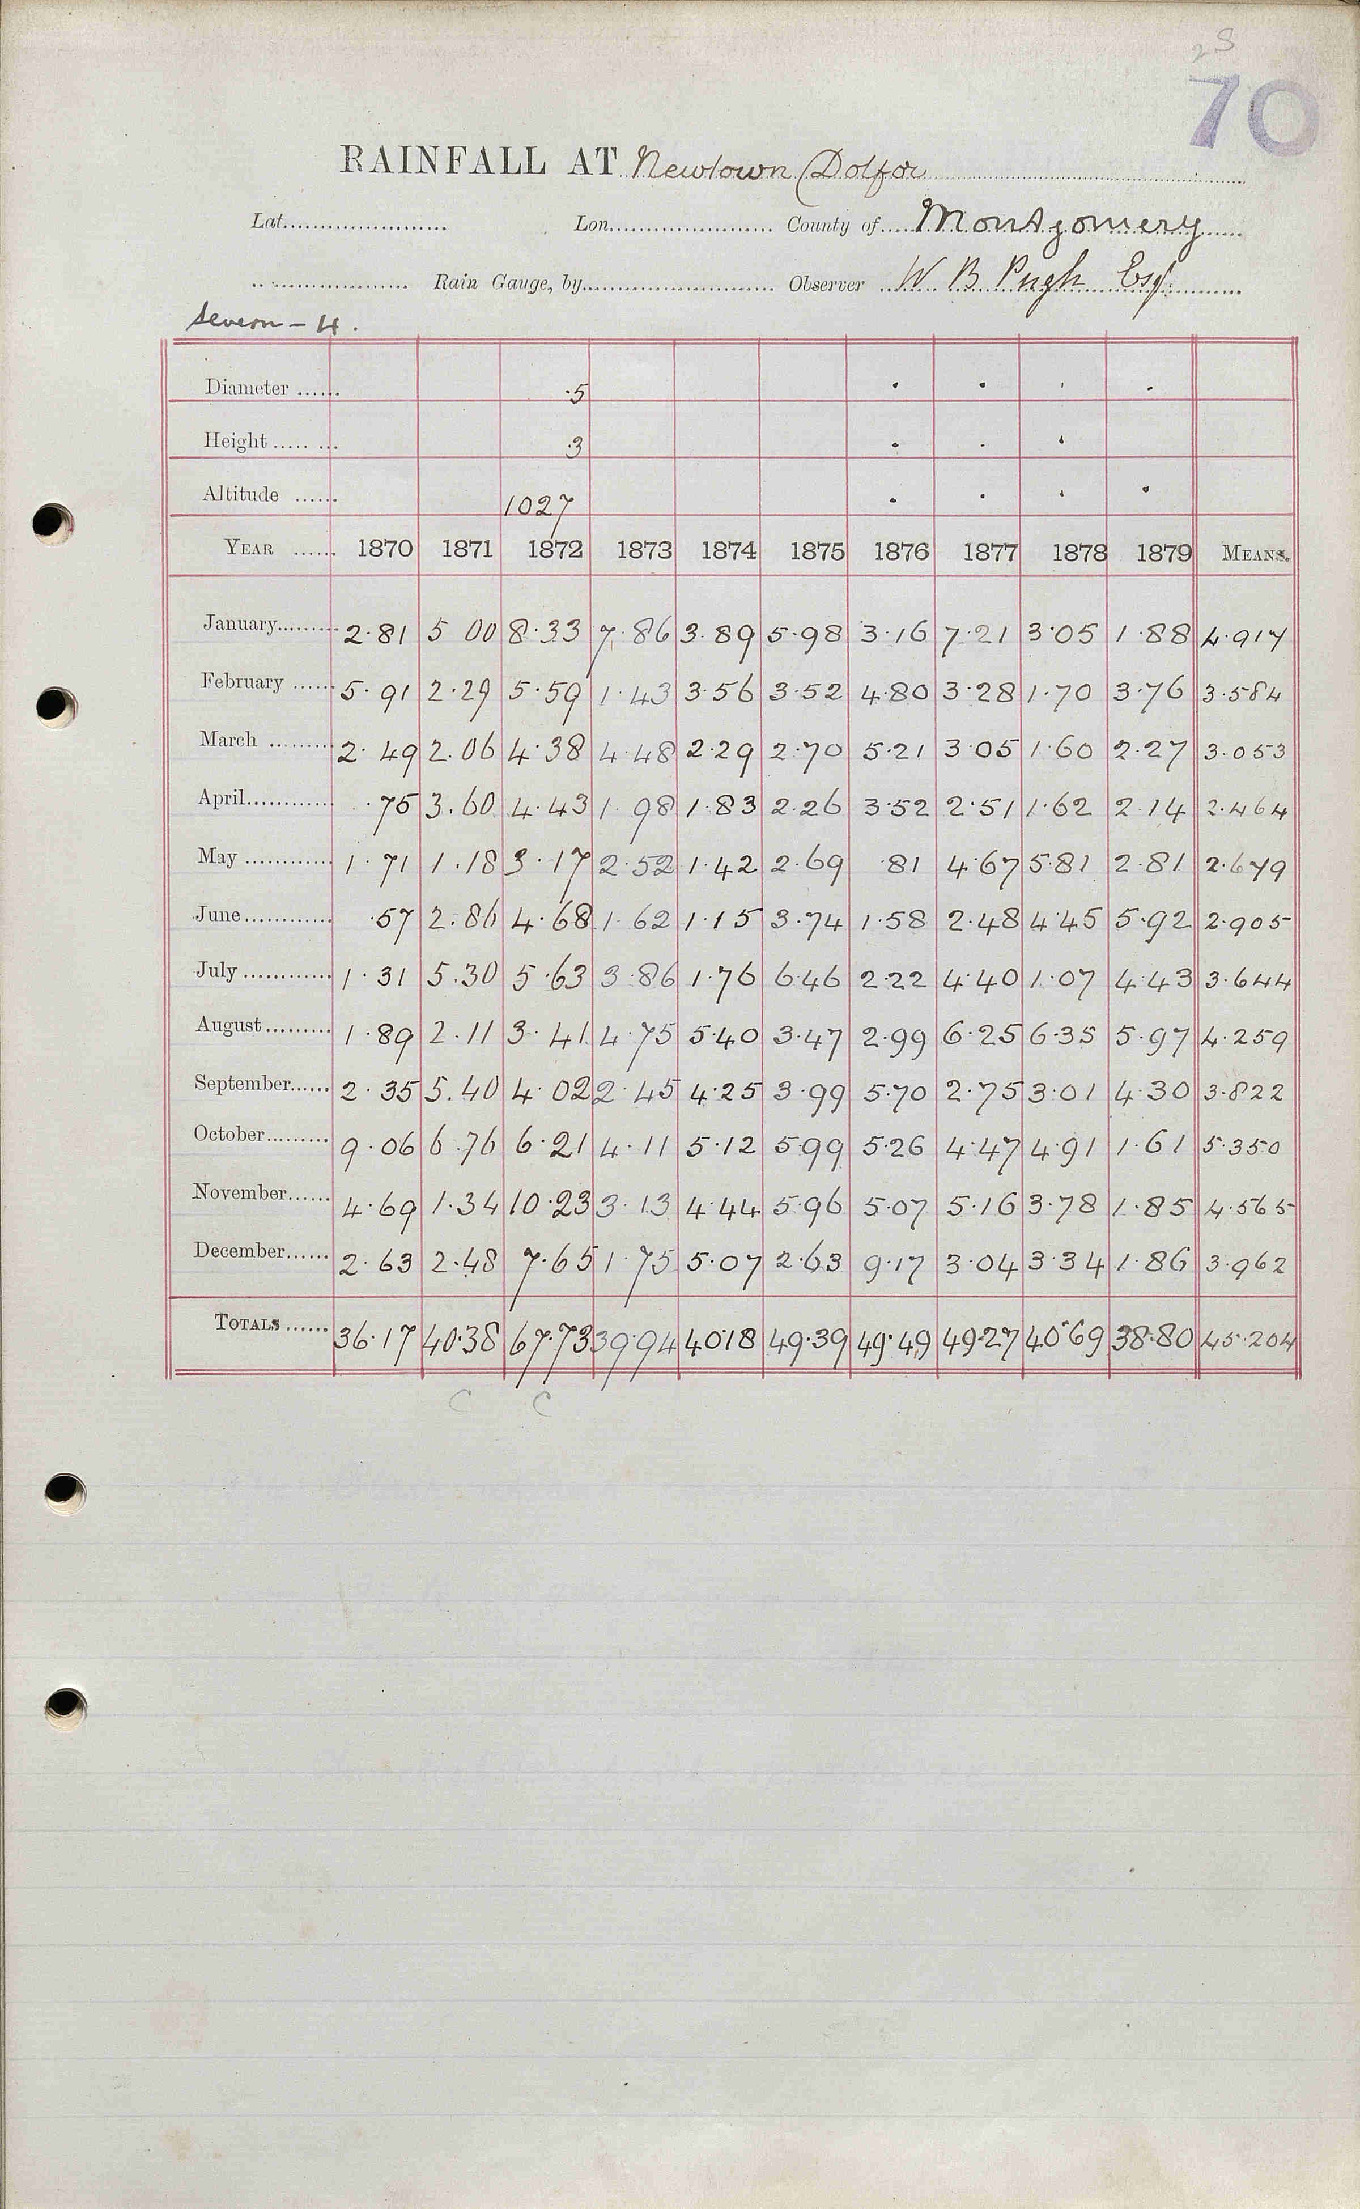 28
70
RAINFALL AT Newtown (Dolfor
Lat. Lon. County of Montgomery
Rain Gauge, by Observer W B Pugh Esq.
Severn - 4.
Diameter 5
Height 3
Altitude 1027
YEAR 1870 1871 1872 1873 1874 1875 1876 1877 1878 1879 MEANS.
January 2.81 5 00 8.33 7.86 3.89 5.98 3.16 7.21 3.05 1.88 4.917
February 5.91 2.29 5.59 1.43 3.56 3.52 4.80 3.28 1.70 3.76 3.584
March 2.49 2.06 4.38 4.48 2.29 2.70 5.21 3.05 1.60 2.27 3.053
April .75 3.60 4.43 1.98 1.83 2.26 3.52 2.51 1.62 2.14 2.464
May 1.71 1.18 3.17 2.52 1.42 2.69 .81 4.67 5.81 2.81 2.679
June .57 2.86 4.68 1.62 1.15 3.74 1.58 2.48 4.45 5.92 2.905
July 1.31 5.30 5.63 3.86 1.76 6.46 2.22 4.40 1.07 4.43 3.644
August 1.89 2.11 3.41 4.75 5.40 3.47 2.99 6.25 6.35 5.97 4.259
September 2.35 5.40 4.02 2.45 4.25 3.99 5.70 2.75 3.01 4.30 3.822
October 9.06 6.76 6.21 4.11 5.12 5.99 5.26 4.47 4.91 1.61 5.350
November 4.69 1.34 10.23 3.13 4.44 5.96 5.07 5.16 3.78 1.85 4.565
December 2.63 2.48 7.65 1.75 5.07 2.63 9.17 3.04 3.34 1.86 3.962
TOTALS 36.17 40.38 67.73 39.94 40.18 49.39 49.49 49.27 40.69 38.80 45.204
C C